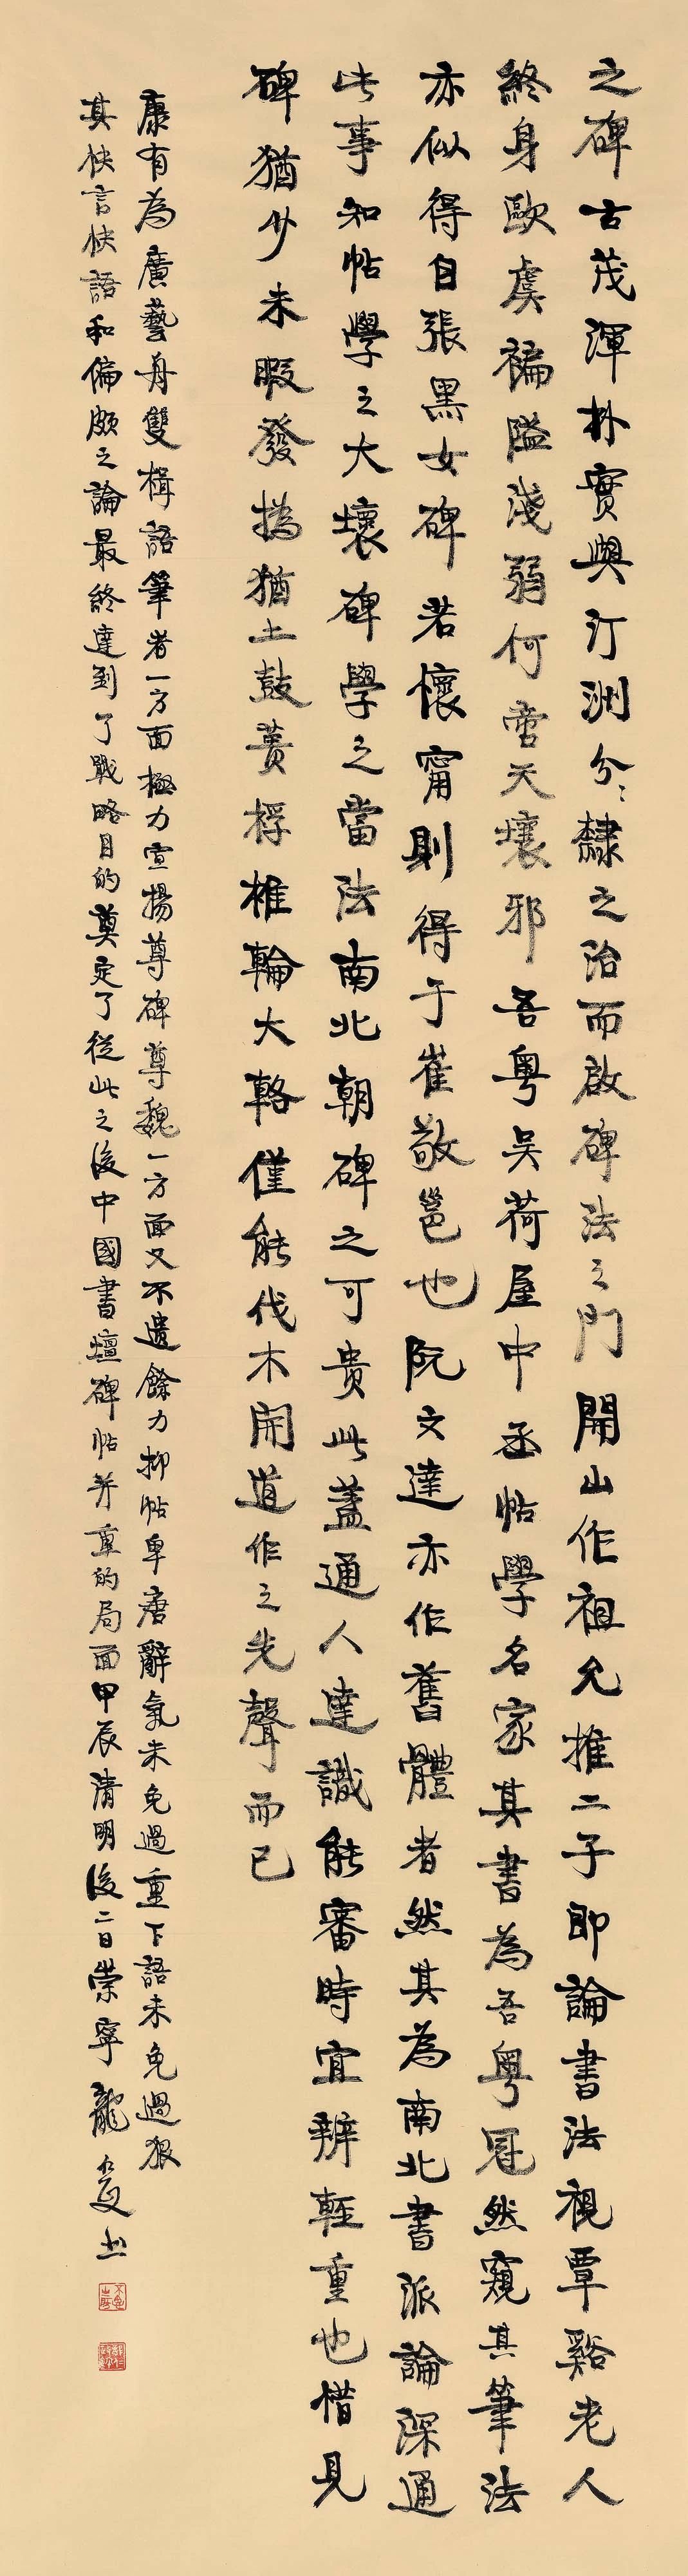 之碑古茂渾朴實與汀洲分〻隸之治而啟碑法之門開山作祖允推二子即論書法視覃谿老人
終身歐虞褊隘淺弱何啻天壤邪吾粤吳荷屋中丞帖學名家其書為吾粤冠然窺其筆法
亦似得自張黑女碑若懷甯則得于崔敬邕也阮文達亦作舊體者然其為南北書派論深通
此事知帖學之大壞碑學之當法南北朝碑之可貴此蓋通人達識能審時宜辨輊重也惜見
碑猶少未暇發撝猶土鼓蕢桴椎輪大輅僅能伐木開道作之先聲而已
康有為廣藝舟雙楫語筆者一方面極力宣揚尊碑尊魏一方面又不遺餘力抑帖卑唐辭氣未免過重下語未免過狠
其快言快語和偏頗之論最終達到了戰略目的奠定了從此之後中國書壇碑帖并重的局面甲辰清明後二日崇寧龍